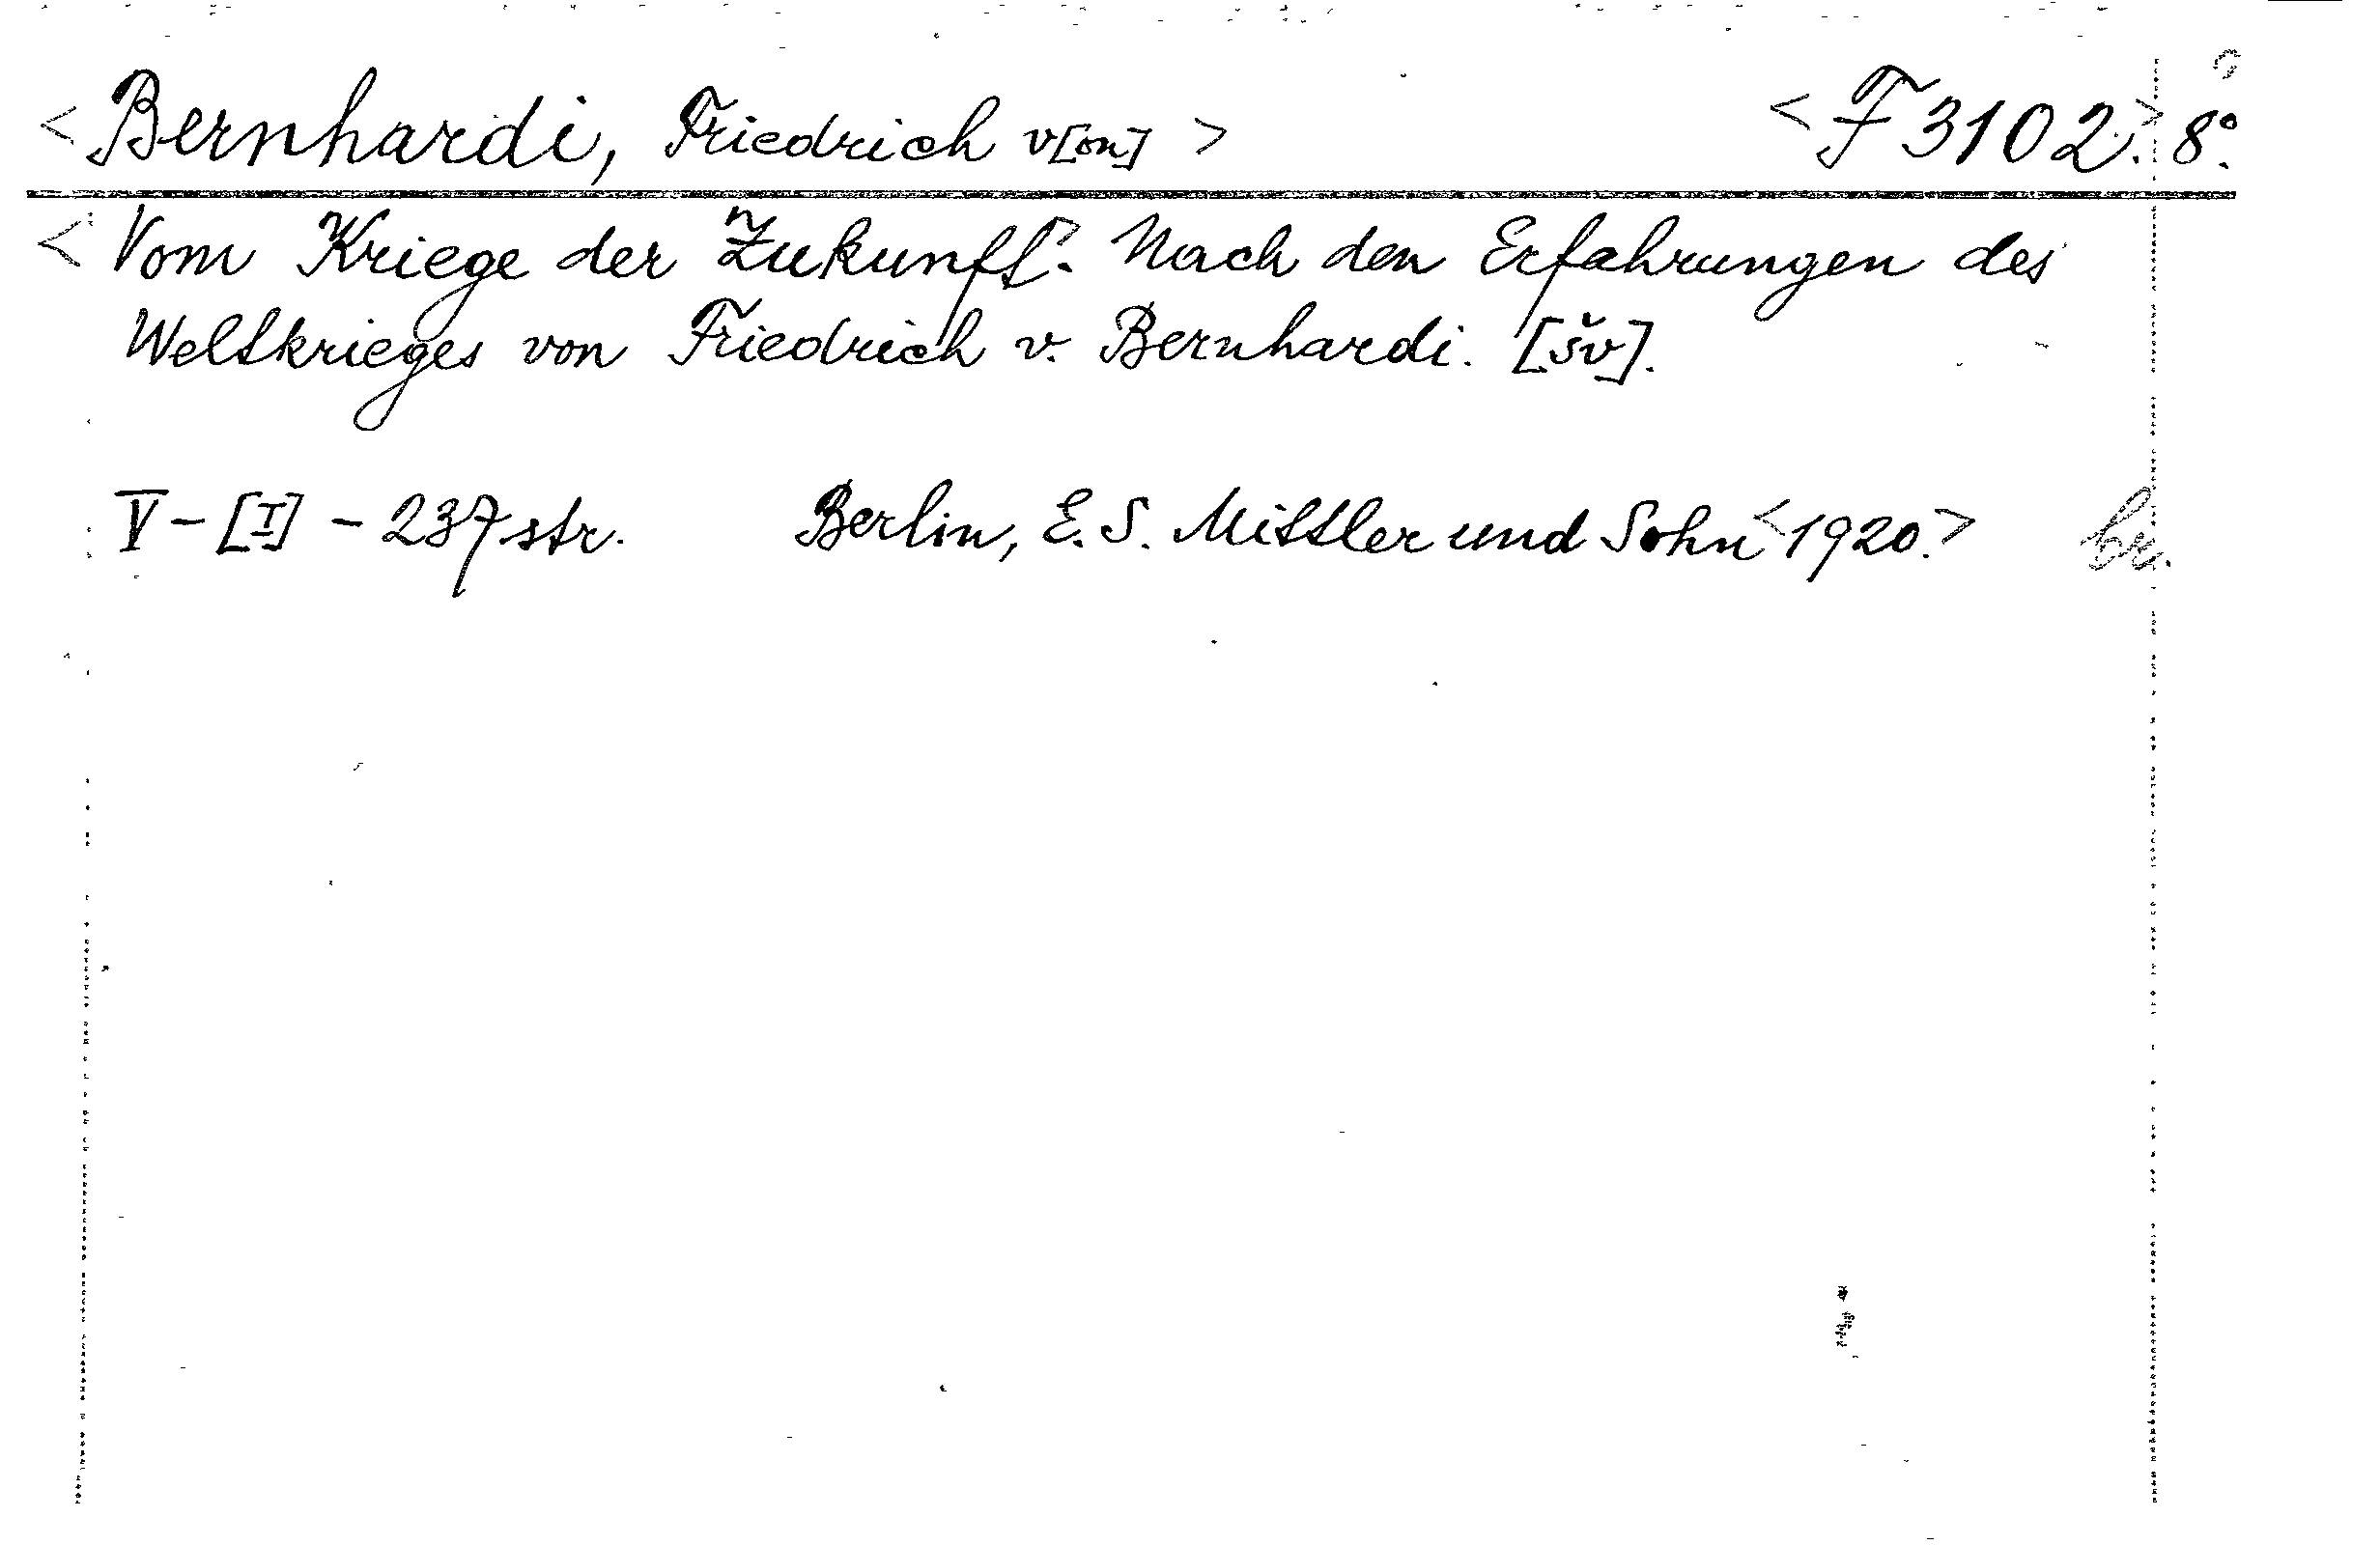 <Bernhardi, Friedrich v[on]> <F 3102.> 8°.
<Vom Kriege der Zukunft.> Nach den Erfahrungen des
Weltkrieges von Friedrich v. Bernhardi. [šv].
V-[I]-237 str. Berlin, E. S. Mittler und Sohn <1920.> br.